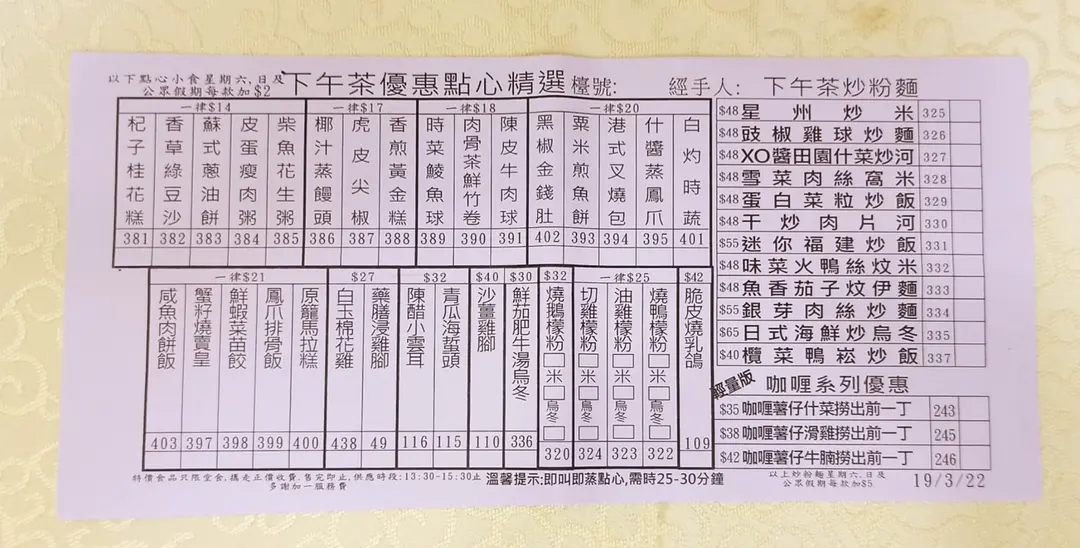 以下點心小食星期六,日及
公眾假期每款加$2
下午茶優惠點心精選
檯號:
經手人:
下午茶炒粉麵
一律$14
杞子桂花糕 381
香草綠豆沙 382
蘇式蔥油餅 383
皮蛋瘦肉粥 384
柴魚花生粥 385
一律$17
椰汁蒸饅頭 386
虎皮尖椒 387
香煎黃金糕 388
一律$18
時菜鯪魚球 389
肉骨茶鮮竹卷 390
陳皮牛肉球 391
一律$20
黑椒金錢肚 402
粟米煎魚餅 393
港式叉燒包 394
什醬蒸鳳爪 395
白灼時蔬 401
一律$21
咸魚肉餅飯 403
蟹籽燒賣皇 397
鮮蝦菜苗餃 398
鳳爪排骨飯 399
原籠馬拉糕 400
$27
白玉棉花雞 438
藥膳浸雞腳 49
$32
陳醋小雲耳 116
青瓜海蜇頭 115
$40
沙薑雞腳 110
$30
鮮茄肥牛湯烏冬 336
$32
燒鵝檬粉□米□烏冬□ 320
一律$25
切雞檬粉□米□烏冬□ 324
油雞檬粉□米□烏冬□ 323
燒鴨檬粉□米□烏冬□ 322
$42
脆皮燒乳鴿 109
$48 星州炒米 325
$48 豉椒雞球炒麵 326
$48 XO醬田園什菜炒河 327
$48 雪菜肉絲窩米 328
$48 蛋白菜粒炒飯 329
$48 干炒肉片河 330
$55 迷你福建炒飯 331
$48 味菜火鴨絲炆米 332
$48 魚香茄子炆伊麵 333
$55 銀芽肉絲炒麵 334
$65 日式海鮮炒烏冬 335
$40 欖菜鴨崧炒飯 337
輕量版
咖喱系列優惠
$35 咖喱薯仔什菜撈出前一丁 243
$38 咖喱薯仔滑雞撈出前一丁 245
$42 咖喱薯仔牛腩撈出前一丁 246
特價食品只限堂食,攜走正價收費,售完即止,供應時段:13:30-15:30止
多謝加一服務費
溫馨提示:即叫即蒸點心,需時25-30分鐘
以上炒粉麵星期六,日及
公眾假期每款加$5
19/3/22